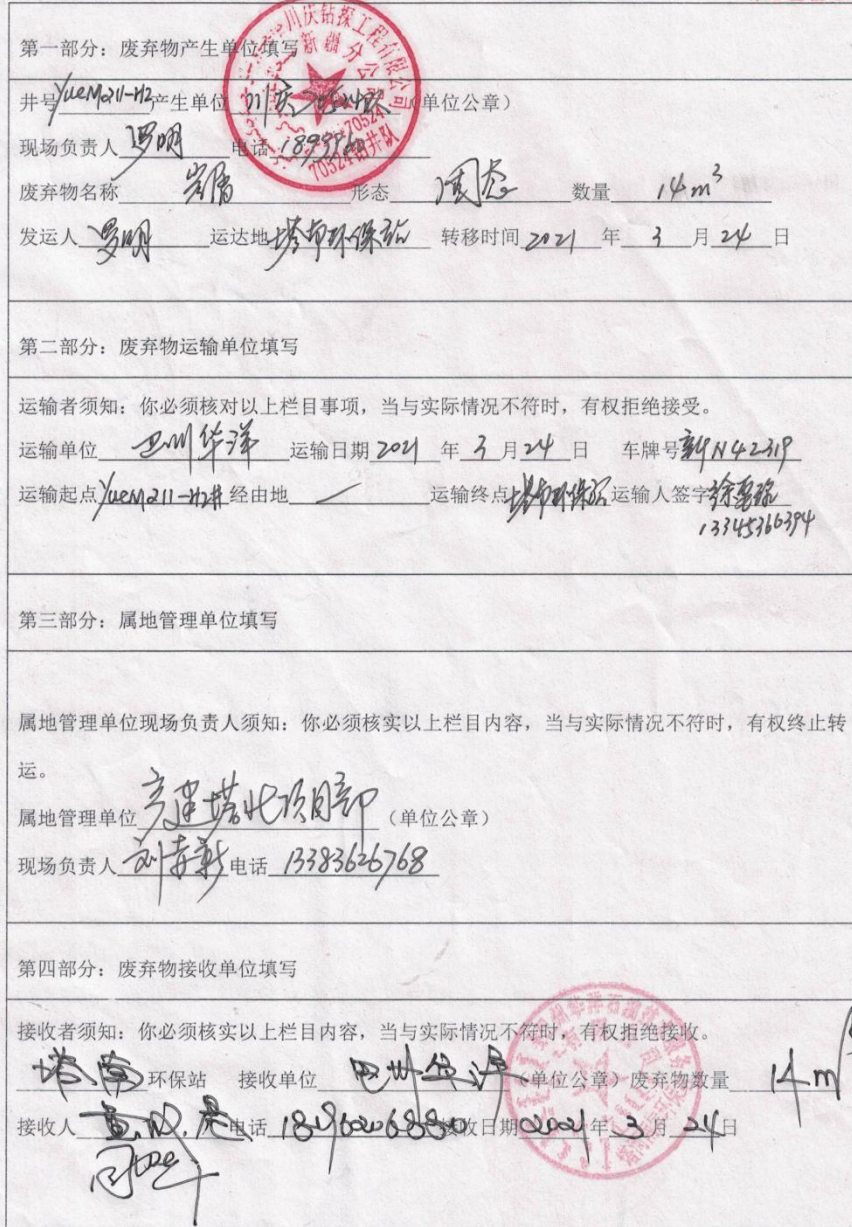 第一部分：废弃物产生单位填写
井号YueM211-H2产生单位（单位公章）
川庆钻探工程有限公司
新疆分公司
70524钻井队
现场负责人 罗明 电话
废弃物名称 岩屑 形态 固态 数量 14m³
发运人 罗明 运达地 塔中环保站 转移时间 2021 年 3 月 24 日
第二部分：废弃物运输单位填写
运输者须知：你必须核对以上栏目事项，当与实际情况不符时，有权拒绝接受。
运输单位 巴州华洋 运输日期 2021 年 3 月 24 日 车牌号 新N42319
运输起点 YueM211-H2井 经由地 运输终点 运输人签字
13345366394
第三部分：属地管理单位填写
属地管理单位现场负责人须知：你必须核实以上栏目内容，当与实际情况不符时，有权终止转
运。
属地管理单位 产建塔北项目部 （单位公章）
现场负责人 电话 13383626768
第四部分：废弃物接收单位填写
接收者须知：你必须核实以上栏目内容，当与实际情况不符时，有权拒绝接收。
环保站 接收单位 巴州华洋（单位公章）废弃物数量 14m³
接收人 电话 接收日期 2021 年 3 月 24 日